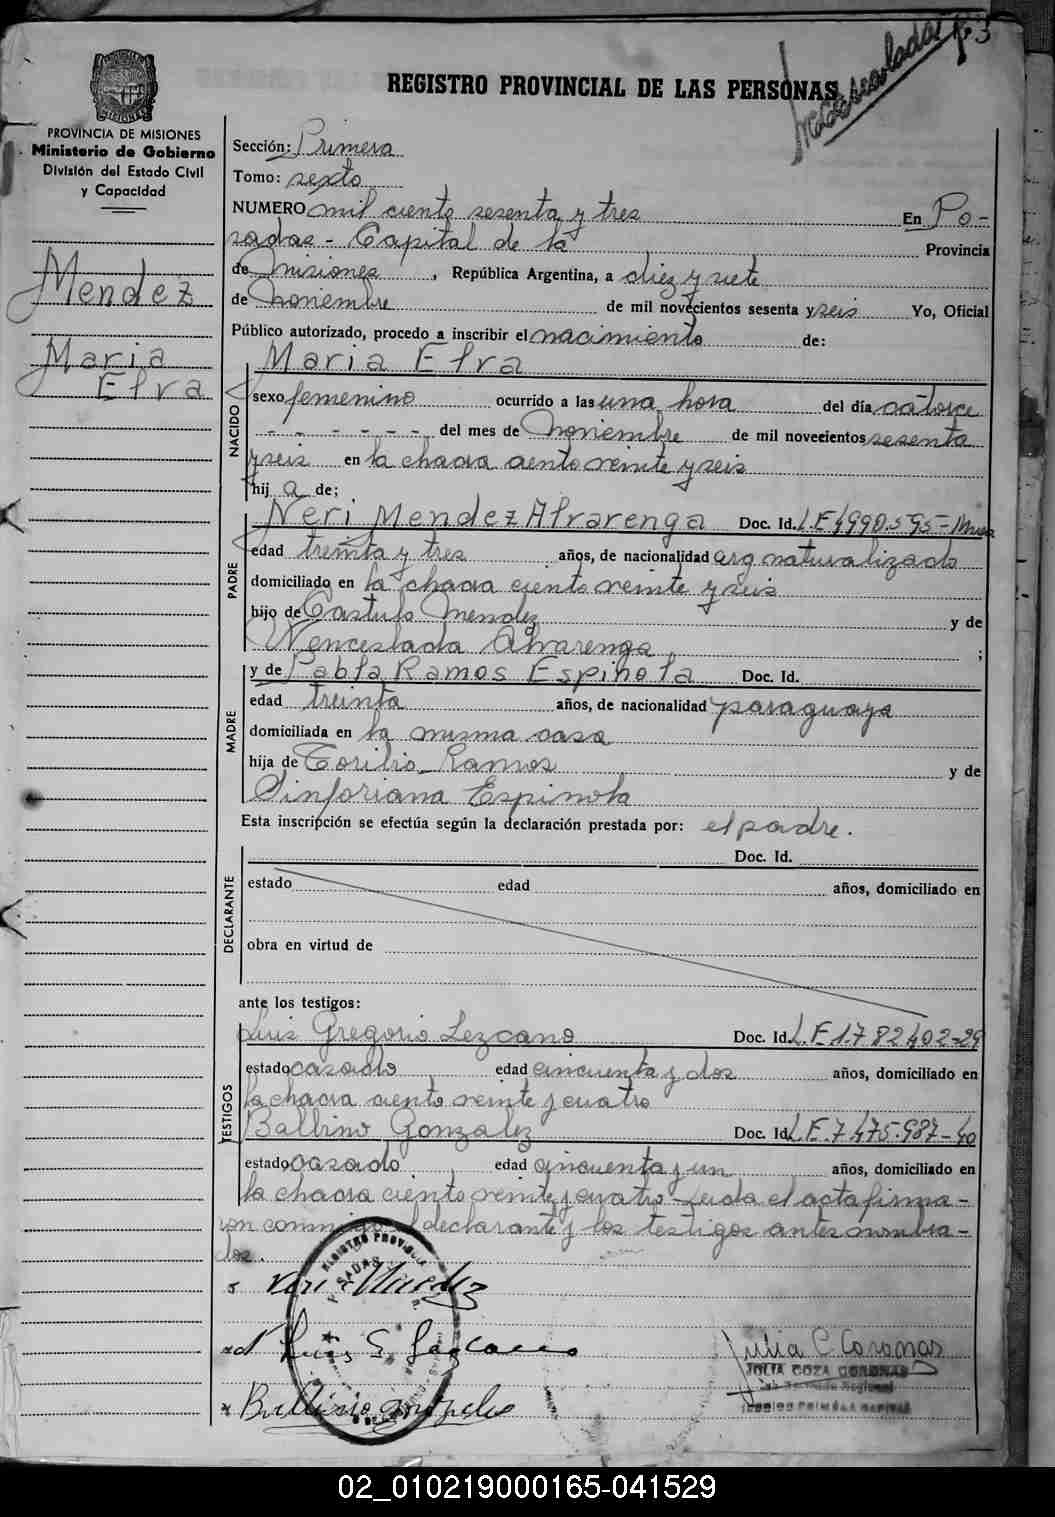 R 3
Inmaculada
REGISTRO PROVINCIAL DE LAS PERSONAS
PROVINCIA DE MISIONES
Ministerio de Gobierno
División del Estado Civil
y Capacidad
Mendez
Maria
Elva
Sección: Primera
Tomo: sexto
NUMERO mil ciento sesenta y tres En Po-
sadas - Capital de la Provincia
de Misiones, República Argentina, a diez y siete
de Noviembre de mil novecientos sesenta y seis Yo, Oficial
Público autorizado, procedo a inscribir el nacimiento de:
NACIDO
Maria Elva
sexo femenino ocurrido a las una hora del día catorce
- - - - - - del mes de Noviembre de mil novecientos sesenta
y seis en la chacra ciento veinte y seis
hij a de:
PADRE
Neri Mendez Alvarenga Doc. Id. L.E 4990.595-
edad treinta y tres años, de nacionalidad arg naturalizado
domiciliado en la chacra ciento veinte y seis
hijo de Castulo Mendez y de
Wenceslada Alvarenga ;
MADRE
y de Pabla Ramos Espinola Doc. Id.
edad treinta años, de nacionalidad paraguaya
domiciliada en la misma casa
hija de Torilio Ramos y de
Sinforiana Espinola
Esta inscripción se efectúa según la declaración prestada por: el padre.
DECLARANTE
Doc. Id.
estado edad años, domiciliado en
obra en virtud de
ante los testigos:
TESTIGOS
Luis Gregorio Lezcano Doc. Id. L.E 1.782402-29
estado casado edad cincuenta y dos años, domiciliado en
la chacra ciento veinte y cuatro
Balbino Gonzalez Doc. Id. L.E. 7.475.987-40
estado casado edad cincuenta y un años, domiciliado en
la chacra ciento veinte y cuatro - Leida el acta firma-
ron conmigo el declarante y los testigos antes nombra-
dos.
REGISTRO PROVINCIAL
POSADAS
Neri Mendez
Luis G. Lezcano
Balbino Gonzalez
Julia C. Coronas
JULIA COZA CORONAS
02_010219000165-041529